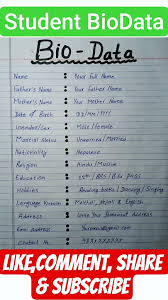 Student BioData
Bio-Data
Name : Your Full Name
Father's Name : Your Father Name
Mother's Name : Your Mother Name
Date of Birth : DD/MM/YYYY
Gender/Sex : Male/Female
Marital Status : Unmarried/Married
Nationality : Nepalese
Religion : Hindu/Muslim
Education : /Pass
Hobbies : Reading books/Dancing/Singing
Language Known : Maithili, & English
Address : Write Your Permanent Address
Email Address :
Contact No. :
LIKE,COMMENT, SHARE
& SUBSCRIBE